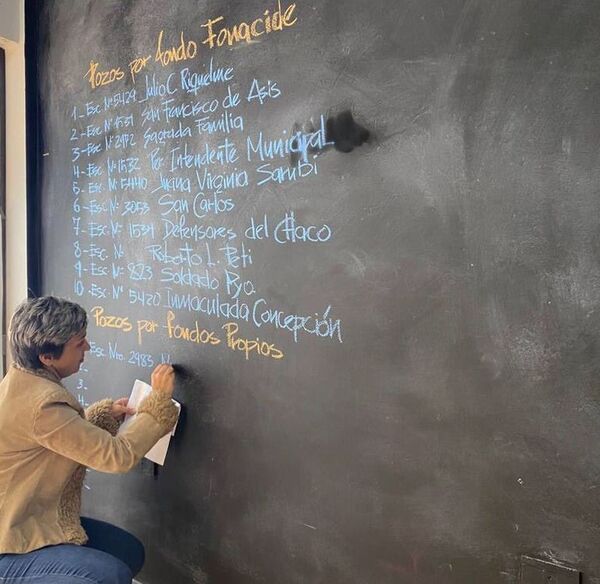 Pozos por fondo Fonacide
1- Esc. Nº 5429 Julio C Riquelme
2- Esc. Nº 1531 San Francisco de Asis
3- Esc Nº 2972 Sagrada Familia
4- Esc Nº 1532 Per. Intendente Municipal
5- Esc. Nº 5440 Juana Virginia Sarubi
6- Esc. Nº 3053 San Carlos
7- Esc. Nº 1531 Defensores del CHaco
8- Esc. Nº Roberto L. Peti
9- Esc. Nº 823 Soldado Pyo.
10- Esc. Nº 5420 Inmaculada Concepción
Pozos por fondos Propios
Esc Nro. 2985
2-
3-
4-